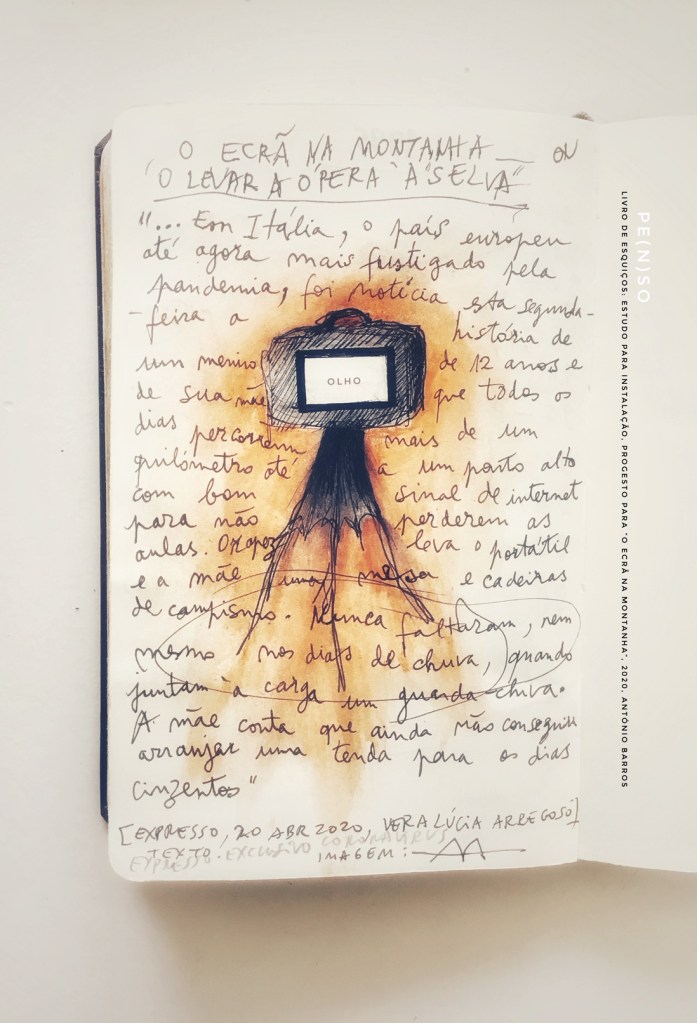 O ECRÃ NA MONTANHA __ OU
"O LEVAR A ÓPERA À SELVA"
"... Em Itália, o país europeu
até agora mais fustigado pela
pandemia, foi notícia esta segunda-
-feira a história de
um menino de 12 anos e
de sua mãe que todos os
dias percorrem mais de um
quilómetro até a um ponto alto
com bom sinal de internet
para não perderem as
aulas. O rapaz leva o portátil
e a mãe uma mesa e cadeiras
de campismo. Nunca faltaram, nem
mesmo nos dias de chuva, quando
juntam à carga um guarda chuva.
A mãe conta que ainda não conseguiu
arranjar uma tenda para os dias
cinzentos"
[EXPRESSO, 20 ABR 2020, VERA LÚCIA ARREGOSO]
TEXTO. IMAGEM:
EXPRESSO. EXCLUSIVO CORONAVÍRUS
OLHO
PE(N)SO
LIVRO DE ESQUIÇOS: ESTUDO PARA INSTALAÇÃO. PROGESTO PARA "O ECRÃ NA MONTANHA", 2020, ANTÓNIO BARROS